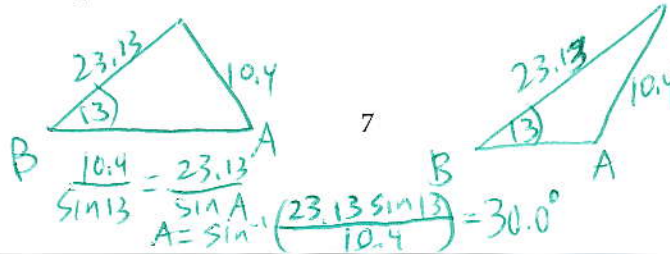 23.13 10.4 23.13 10.4
13 13
B A 7 B A
10.4/sin13 = 23.13/sin A
A = sin⁻¹(23.13 sin13/10.4) = 30.0°